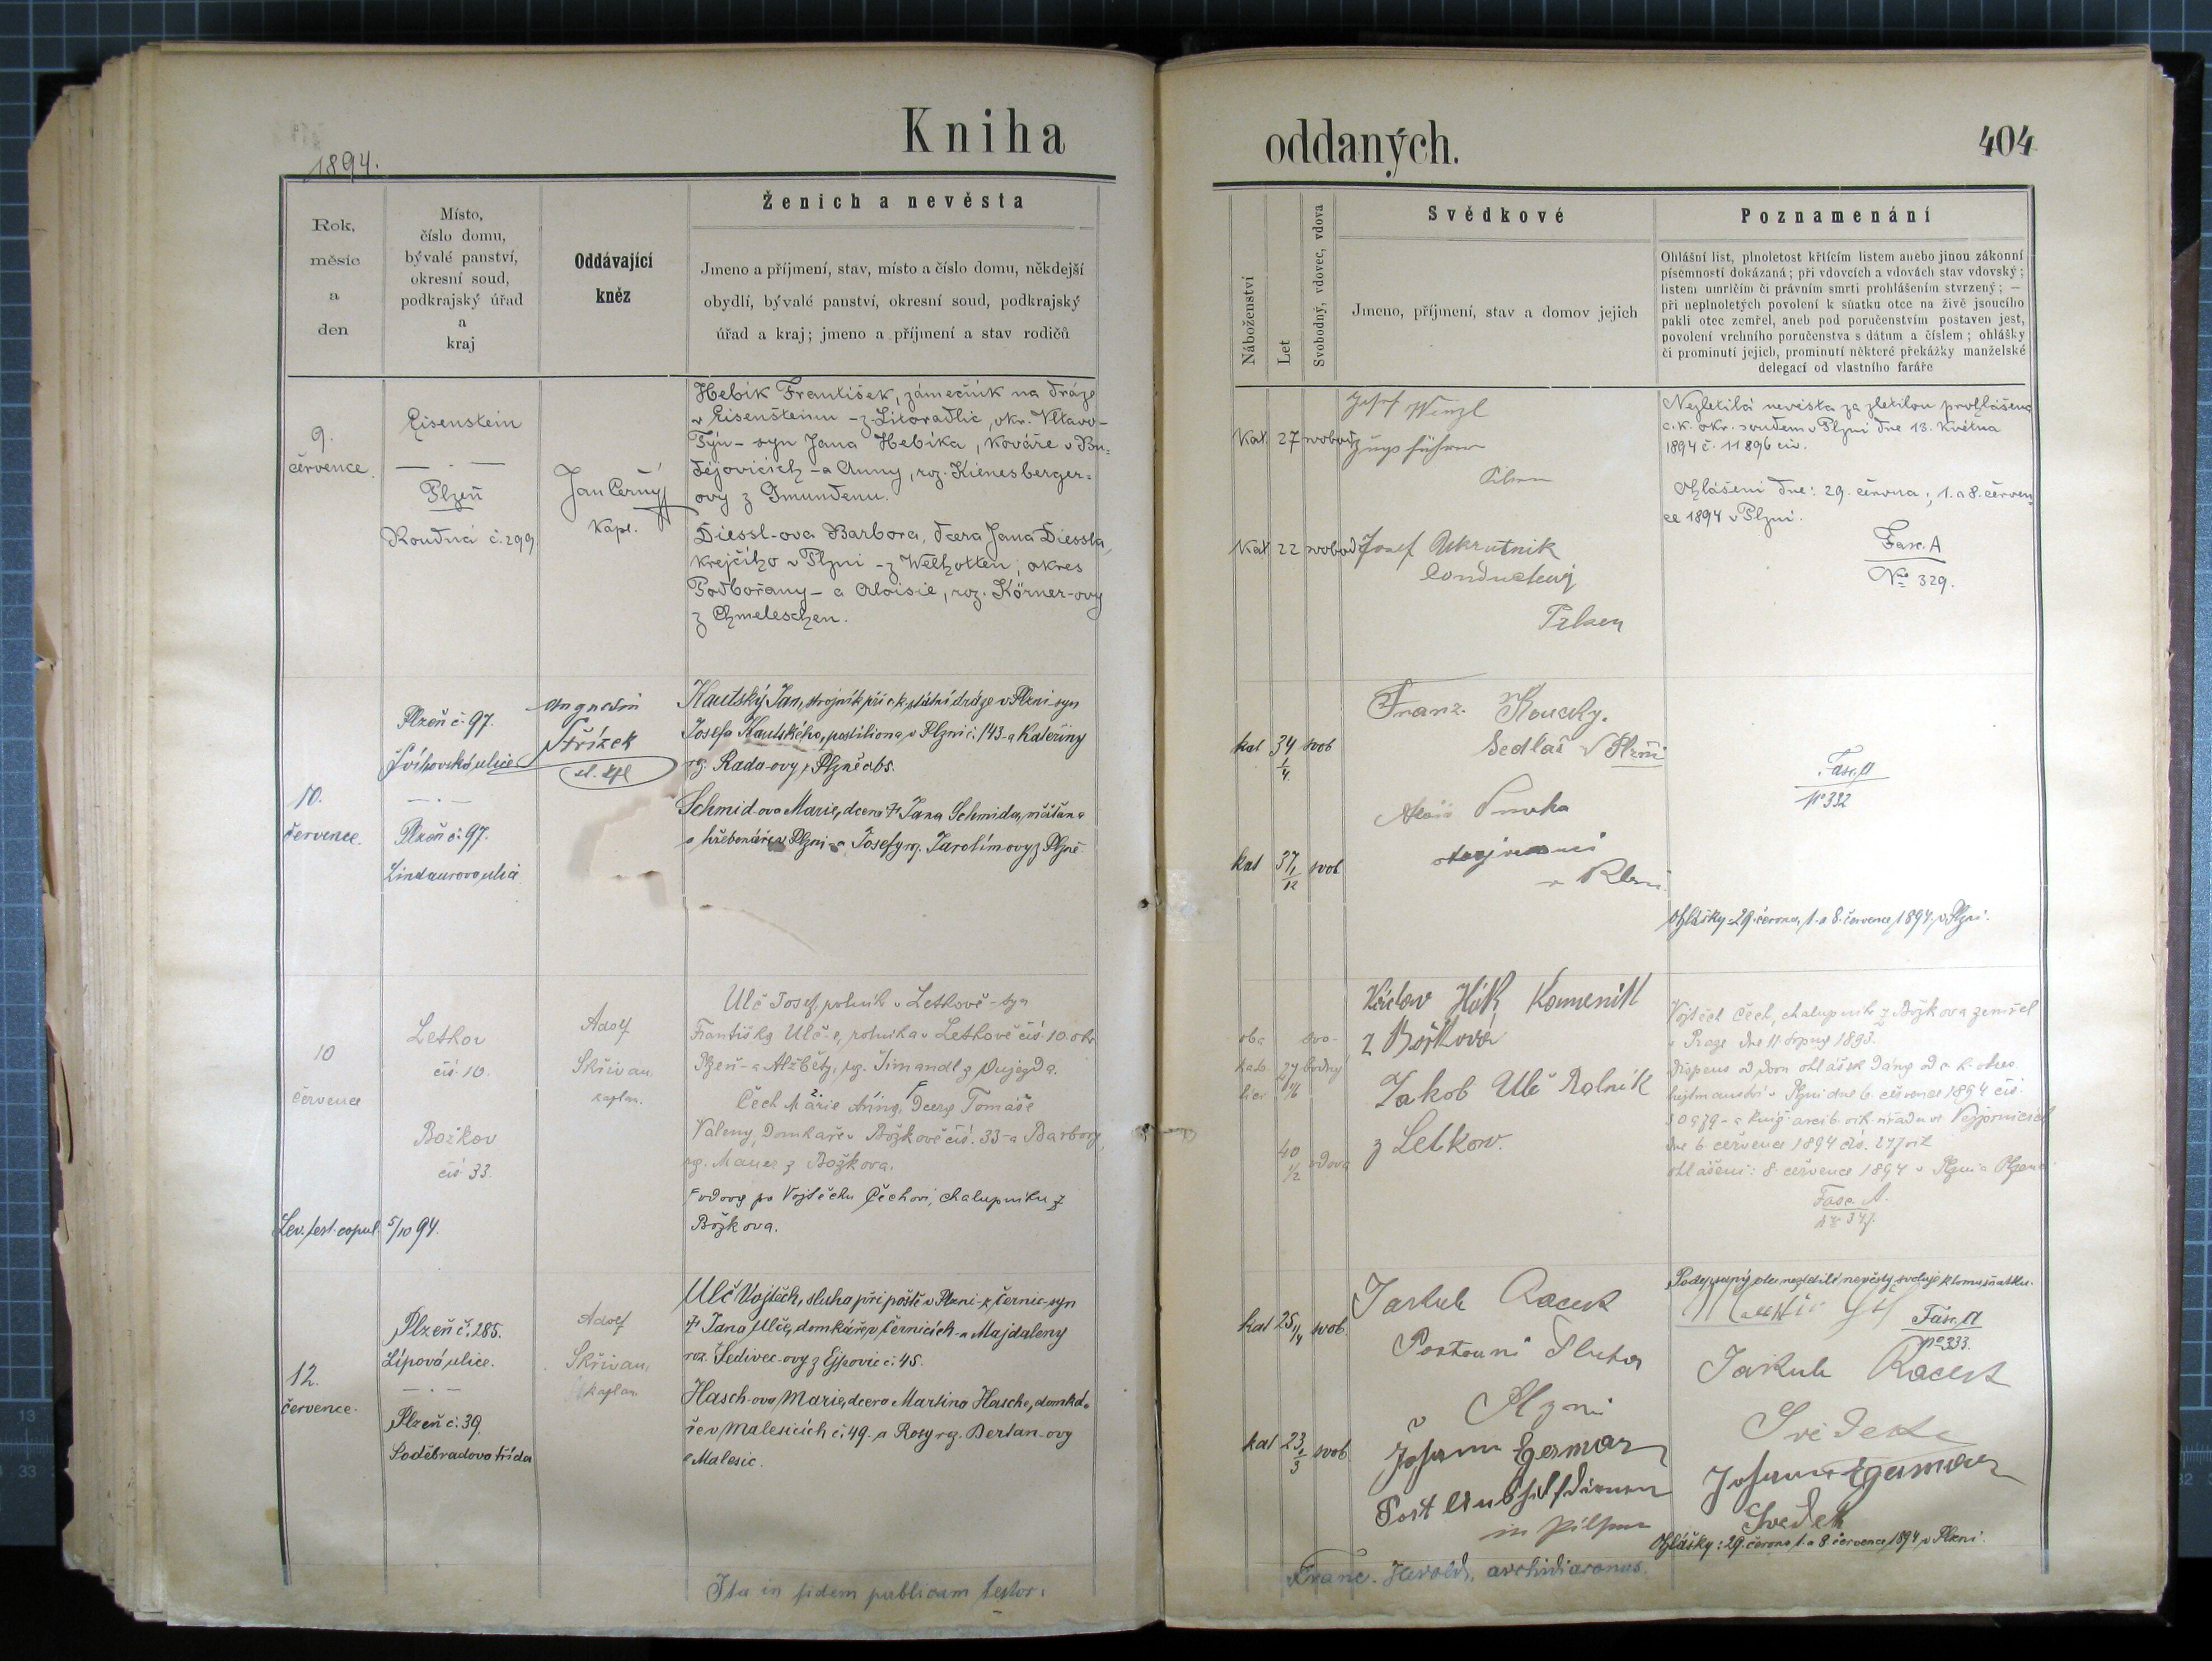 Kniha
oddaných.
404
1894.
Rok,
měsíc
a
den
Místo,
číslo domu,
bývalé panství,
okresní soud,
podkrajský úřad
a
kraj
Oddávající
kněz
Ženich a nevěsta
Jmeno a příjmení, stav, místo a číslo domu, někdejší
obydlí, bývalé panství, okresní soud, podkrajský
úřad a kraj; jmeno a příjmení a stav rodičů
Náboženství
Let
Svobodný, vdovec, vdova
Svědkové
Jmeno, příjmení, stav a domov jejich
Poznamenání
Ohlášní list, plnoletost křticím listem anebo jinou zákonní
písemností dokázaná; při vdovcích a vdovách stav vdovský;
listem umrlčím či právním smrti prohlášením stvrzený; —
při neplnoletých povolení k sňatku otce na živě jsoucího
pakli otec zemřel, aneb pod poručenstvím postaven jest,
povolení vrchního poručenstva s dátum a číslem; ohlášky
či prominutí jejich, prominutí některé překážky manželské
delegací od vlastního faráře
9.
července.
Eisenstein
— . —
Plzeň
Roudná č. 299
Jan Černý
kapl.
Hebík František, zámečník na dráze
v Eisensteinu - z Litoradlic, okr. Vltavo-
Týn - syn Jana Hebíka, kováře v Bu-
dějovicích - a Anny, roz. Kienesberger-
ovy z Gmundenu.
Diessl-ova Barbora, dcera Jana Diessla,
krejčího v Plzni - z Welhotten, okres
Podbořany - a Aloisie, roz. Körner-ovy
z Chmeleschen.
Kat. 27 svobod
Josef Wenzl
Zugsführer
Pilsen
Kat 22 svobod
Josef
Pilsen
Nezletilá nevěsta za zletilou prohlášena
c. k. okr. soudem v Plzni dne 13. května
1894 č. 11896 civ.
Ohlášeni dne: 29. června, 1. a 8. červen-
ce 1894 v Plzni.
Fasc. A
No 329.
10.
července.
Plzeň č. 97.
ulice
— . —
Plzeň č. 97.
Lindaurova ulice
Augustin
Střízek
st. kpl
Kautský Jan, strojník při c. k. státní dráze v Plzni - syn
Josefa Kautského, postiliona v Plzni č. 143 - a Kateřiny
rz. Rada-ovy z Plzně
Schmid-ova Marie, dcera † Jana Schmida, měšťana
a hřebenáře v Plzni - a Josefy rz. Jarolímovy z Plzně
kat 34 1/4 svob
kat 37 1/12 svob
Franz. Koucky.
Sedlař v Plzni
v Plzni
Fasc. A
No 332
Ohlášky: 29. června, 1. a 8. července 1894 v Plzni.
10
července
Letkov
čís 10.
Božkov
čís 33.
Adolf
Skřivan,
kaplan.
Ulč Josef, rolník v Letkově - syn
Františka Ulč-e, rolníka v Letkově čís. 10. okr.
Plzeň - a Alžběty, rz. Šimandl z Oujezda.
Čech Marie Anna, dcera Tomáše
Valeny, domkaře v Božkově čís. 33 - a Barbory,
rz. Mauer z Božkova.
vdova po Vojtěchu Čechovi, chalupníku z
Božkova.
Lev. test. copul. 5/10 94.
oba
kato-
lici
svo-
bodný
40 1/2 vdova
Václav Kameník
z Božkova
Jakob Ulč Rolník
z Letkow.
Vojtěch Čech, chalupník z Božkova zemřel
v Praze dne 11 srpna 1893.
Dispens od dvou ohlášek dány od c. k. okres.
hejtmanství v Plzni dne 6. července 1894 čís
dne 6 července 1894 čís.
ohlášeni: 8 července 1894 v Plzni a
Fasc. A.
No 347.
12.
července.
Plzeň č. 285.
Lípová ulice.
— . —
Plzeň č. 39.
Poděbradova třída
Adolf
Skřivan,
kaplan.
Ulč Vojtěch, sluha při poště v Plzni - z Černic - syn
† Jana Ulče, domkáře v Černicích - a Majdaleny
roz. Šedivec-ovy z Ejpovic č. 45.
Hasch-ova Marie, dcera Martina Hasche, domká-
ře v Malesicích č. 49 - a Rosy rz. Bertan-ovy
z Malesic.
kat 25 1/4 svob.
kat 23 1/3 svob.
Jakub Racek
Poštovní Sluha
Plzni
Johann Egermaier
Post Aushilfsdiener
in Pilsen
Podepsaný otec nezletilé nevěsty svoluje k tomu sňatku.
Fasc. A
No 333.
Jakub Racek
Svědek
Johann Egermaier
Svědek
Ohlášky: 29. června, 1. a 8. července 1894 v Plzni.
Ita in fidem publicam testor:
Franc. Herold, archidiaconus.